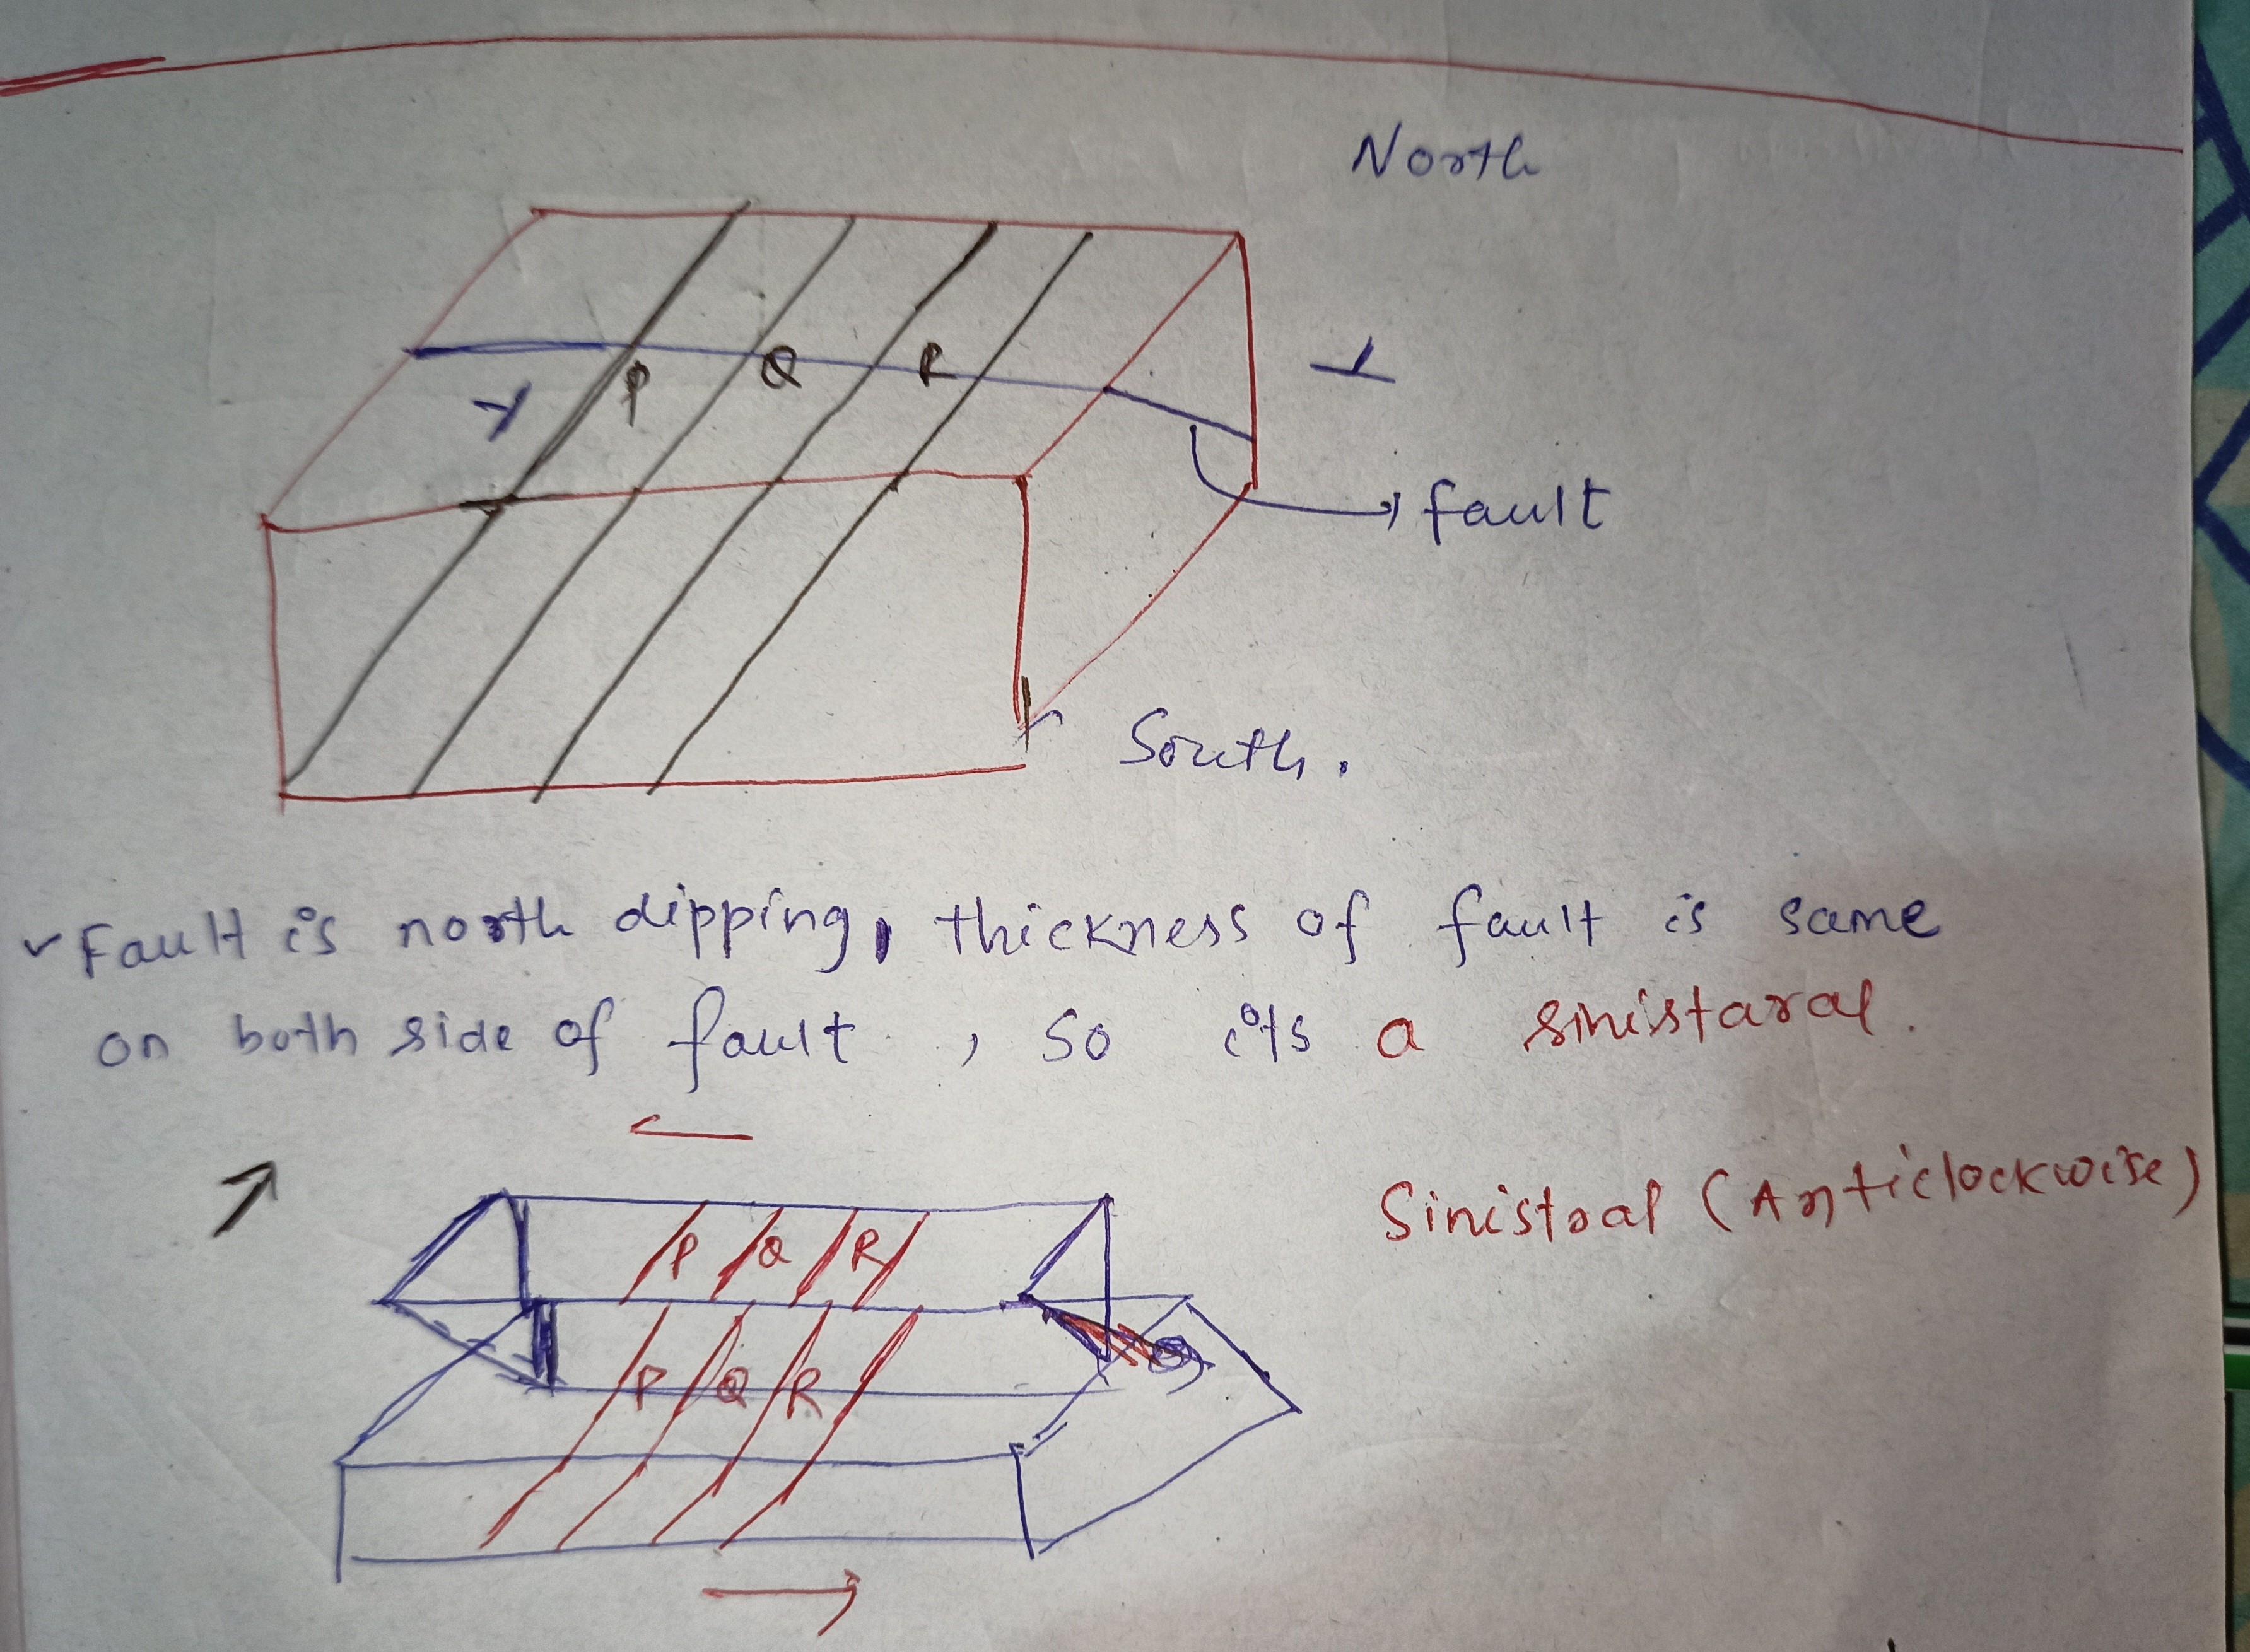 North
P Q R
fault
South.
✓ Fault is north dipping, thickness of fault is same
on both side of fault, so its a sinistaral.
Sinistral (Anticlockwise)
P Q R
P Q R